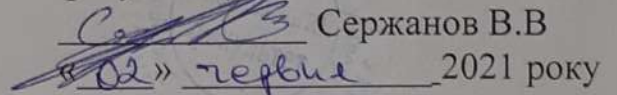 Сержанов В.В
«02» червня 2021 року